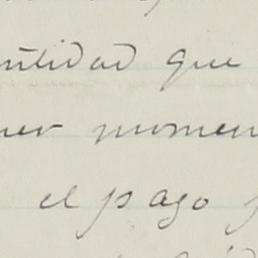 ntidad que
ner momen
el pago